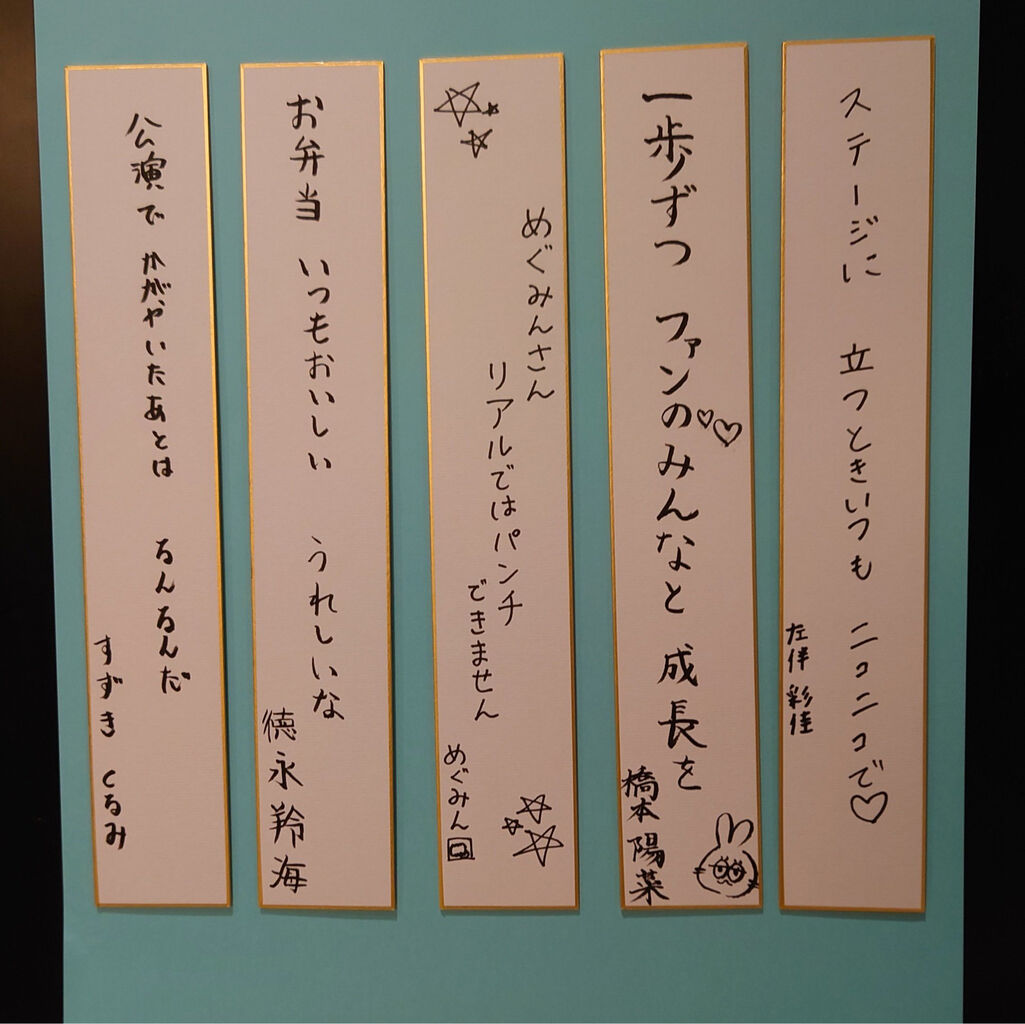 ステージに 立つときいつも ニコニコで♡
左伴 彩佳
一歩ずつ ファンのみんなと 成長を
橋本陽菜
めぐみんさん
リアルではパンチ
できません
めぐみん
お弁当 いつもおいしい うれしいな
德永羚海
公演で かがやいたあとは るんるんだ
すずき くるみ